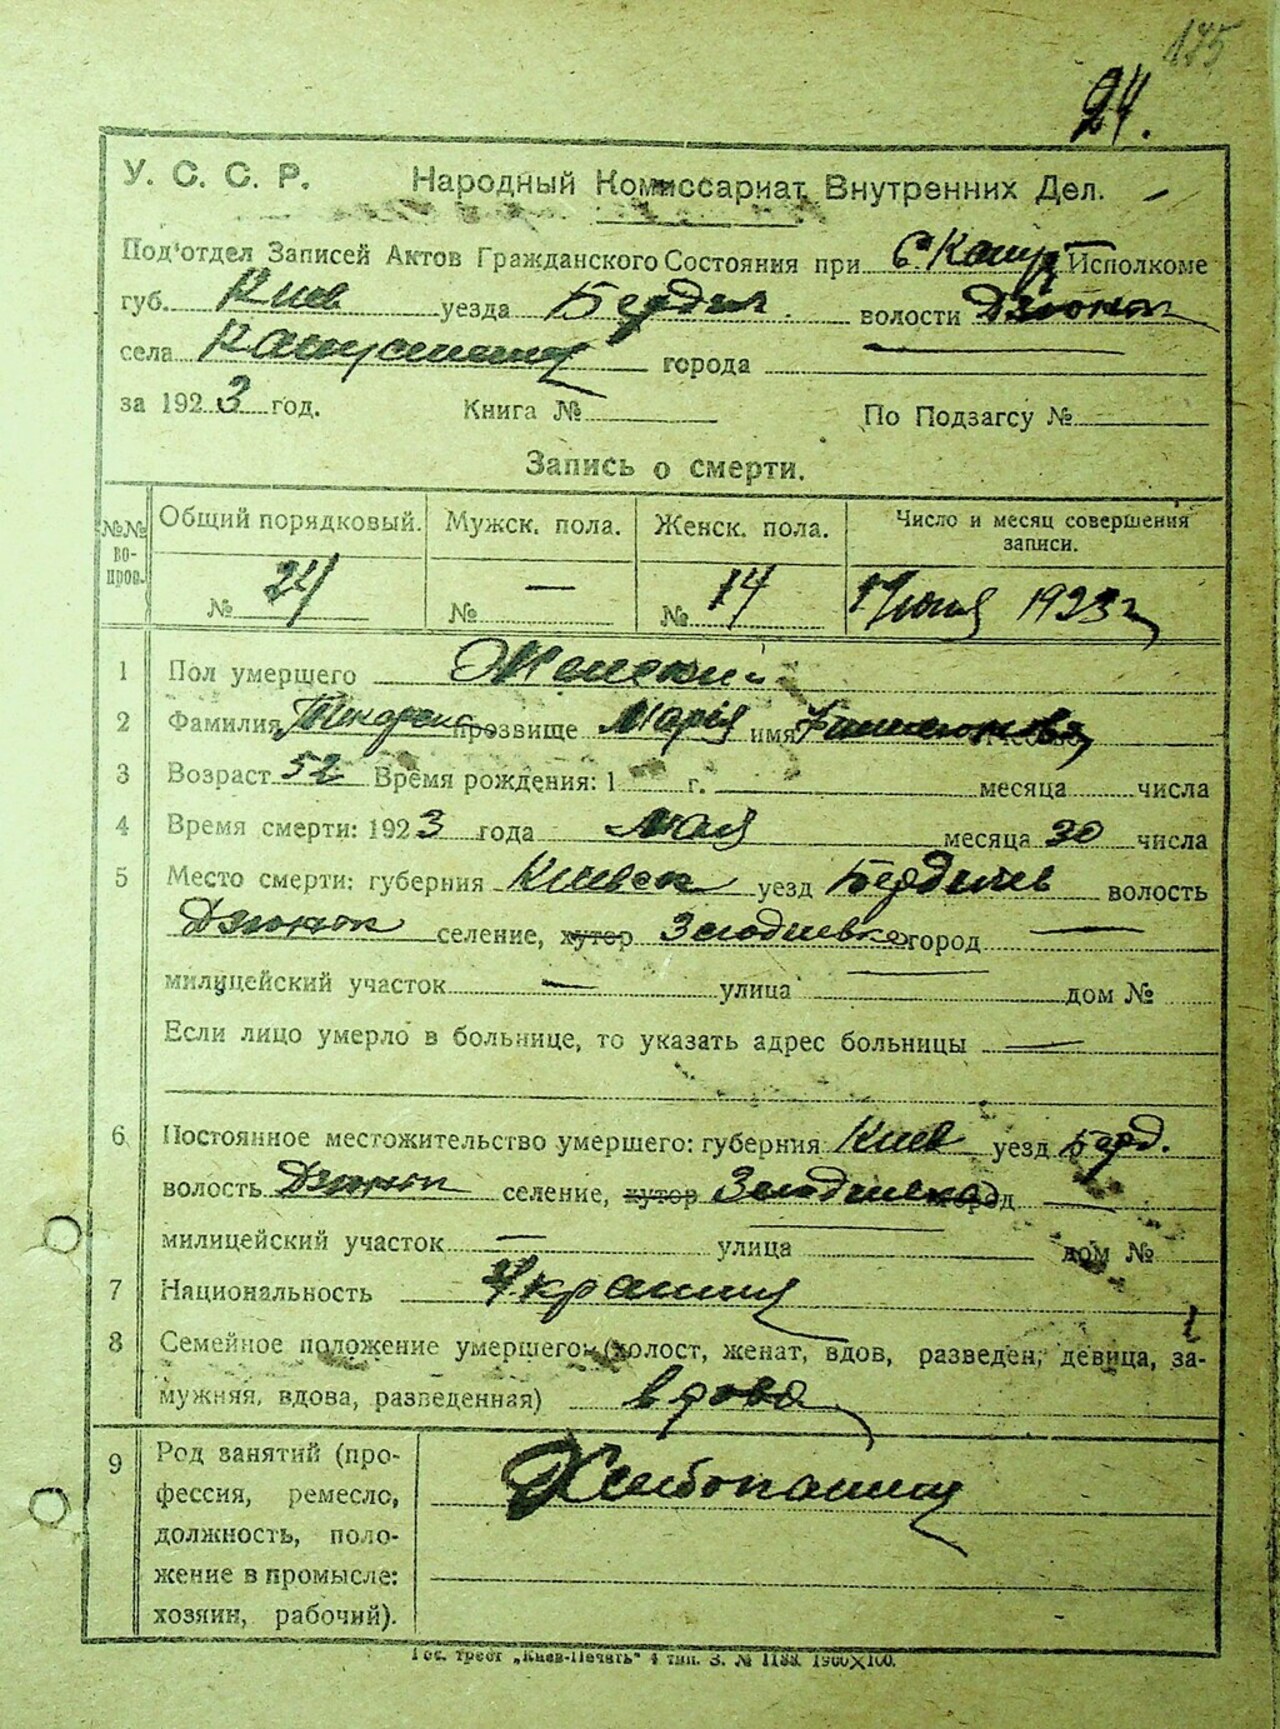 175
24.
У. С. С. Р. Народный Комиссариат Внутренних Дел.
Под'отдел Записей Актов Гражданского Состояния при С. Капу Исполкоме
губ. Киев уезда Бердич. волости Дзюньк
села города
за 1923 год. Книга № По Подзагсу №
Запись о смерти.
№№ вопров. Общий порядковый. Мужск. пола. Женск. пола. Число и месяц совершения
записи.
№ 24 № — № 14 июня 1923 г
1 Пол умершего Женский
2 Фамилия прозвище Марія имя
3 Возраст 52 Время рождения: 1 г. месяца числа
4 Время смерти: 1923 года мая месяца 30 числа
5 Место смерти: губерния Киевск уезд Бердичев волость
Дзюньк селение, хутор город —
милицейский участок — улица — дом №
Если лицо умерло в больнице, то указать адрес больницы —
6 Постоянное местожительство умершего: губерния Киев уезд Берд.
волость Дзюньк селение, хутор город —
милицейский участок — улица — дом №
7 Национальность
8 Семейное положение умершего (холост, женат, вдов, разведен, девица, за-
мужняя, вдова, разведенная) вдова
9 Род занятий (про-
фессия, ремесло,
должность, поло-
жение в промысле:
хозяин, рабочий).
Гос. трест „Киев-Печать" 4 тип. З. № 1188. 1900×100.